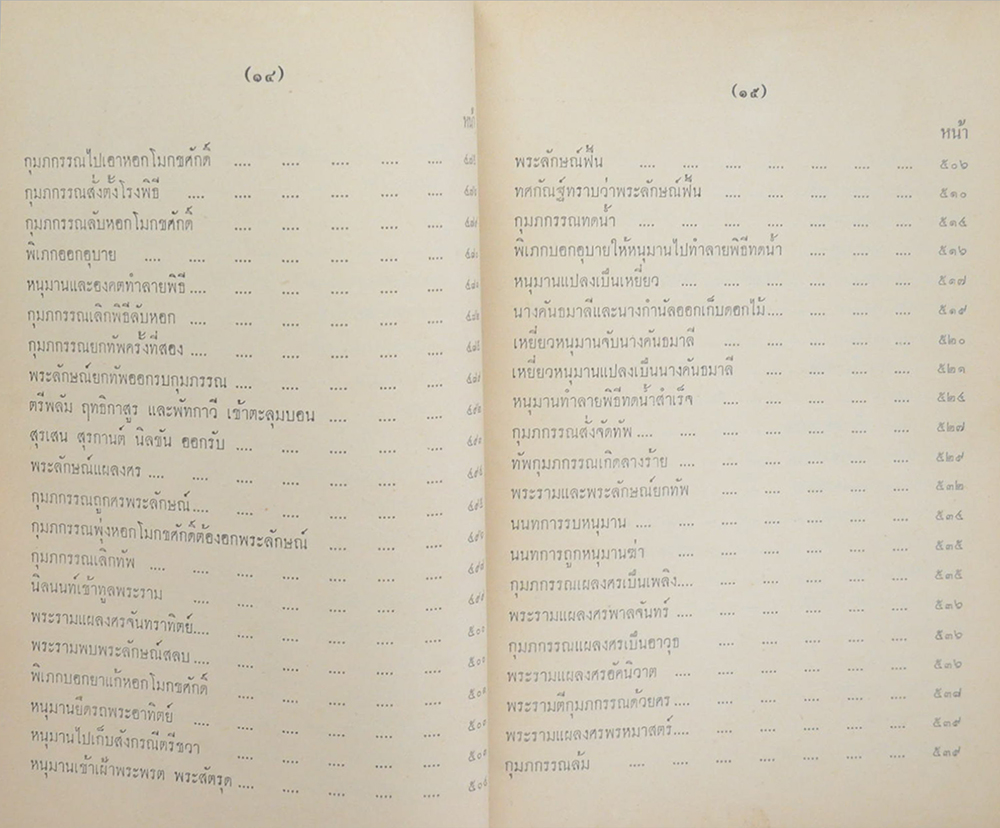 (๑๔)
หน้า
กุมภกรรณไปเอาหอกโมกขศักดิ์ .... .... .... .... ....
กุมภกรรณสั่งตั้งโรงพิธี .... .... .... .... ....
กุมภกรรณลับหอกโมกขศักดิ์ .... .... .... .... ....
พิเภกออกอุบาย .... .... .... .... .... ....
หนุมานและองคตทำลายพิธี .... .... .... .... .... ....
กุมภกรรณเลิกพิธีลับหอก .... .... .... .... .... ....
กุมภกรรณยกทัพครั้งที่สอง .... .... .... .... .... ....
พระลักษณ์ยกทัพออกรบกุมภกรรณ .... .... .... .... ....
ตรีพลัม ฤทธิกาสูร และพัทกาวี เข้าตะลุมบอน .... .... ....
สุรเสน สุรกานต์ นิลขัน ออกรับ .... .... .... .... ....
พระลักษณ์แผลงศร .... .... .... .... .... ....
กุมภกรรณถูกศรพระลักษณ์ .... .... .... .... .... ....
กุมภกรรณพุ่งหอกโมกขศักดิ์ต้องอกพระลักษณ์ .... .... ....
กุมภกรรณเลิกทัพ .... .... .... .... .... ....
นิลนนท์เข้าทูลพระราม .... .... .... .... .... ....
พระรามแผลงศรจันทราทิตย์ .... .... .... .... .... .... ๕๐๐
พระรามพบพระลักษณ์สลบ .... .... .... .... .... ....
พิเภกบอกยาแก้หอกโมกขศักดิ์ .... .... .... .... ....
หนุมานยึดรถพระอาทิตย์ .... .... .... .... .... ....
หนุมานไปเก็บสังกรณีตรีชวา .... .... .... .... ....
หนุมานเข้าเฝ้าพระพรต พระสัตรุด .... .... .... .... ....
(๑๕)
หน้า
พระลักษณ์ฟื้น .... .... .... .... .... .... ๕๐๖
ทศกัณฐ์ทราบว่าพระลักษณ์ฟื้น .... .... .... .... .... ๕๑๐
กุมภกรรณทดน้ำ .... .... .... .... .... .... ๕๑๔
พิเภกบอกอุบายให้หนุมานไปทำลายพิธีทดน้ำ .... .... .... ๕๑๖
หนุมานแปลงเป็นเหยี่ยว .... .... .... .... .... .... ๕๑๗
นางคันธมาลีและนางกำนัลออกเก็บดอกไม้ .... .... .... .... ๕๑๙
เหยี่ยวหนุมานจับนางคันธมาลี .... .... .... .... .... ๕๒๐
เหยี่ยวหนุมานแปลงเป็นนางคันธมาลี .... .... .... .... ๕๒๑
หนุมานทำลายพิธีทดน้ำสำเร็จ .... .... .... .... .... ๕๒๔
กุมภกรรณสั่งจัดทัพ .... .... .... .... .... .... .... ๕๒๗
ทัพกุมภกรรณเกิดลางร้าย .... .... .... .... .... .... ๕๒๙
พระรามและพระลักษณ์ยกทัพ .... .... .... .... .... ๕๓๒
นนทการรบหนุมาน .... .... .... .... .... .... .... ๕๓๔
นนทการถูกหนุมานฆ่า .... .... .... .... .... .... ๕๓๕
กุมภกรรณแผลงศรเป็นเพลิง .... .... .... .... .... .... ๕๓๕
พระรามแผลงศรพาลจันทร์ .... .... .... .... .... .... ๕๓๖
กุมภกรรณแผลงศรเป็นอาวุธ .... .... .... .... .... ๕๓๖
พระรามแผลงศรอัคนิวาต .... .... .... .... .... .... ๕๓๖
พระรามตีกุมภกรรณด้วยศร .... .... .... .... .... .... ๕๓๘
พระรามแผลงศรพรหมาสตร์ .... .... .... .... .... .... ๕๓๙
กุมภกรรณล้ม .... .... .... .... .... .... .... ๕๓๙